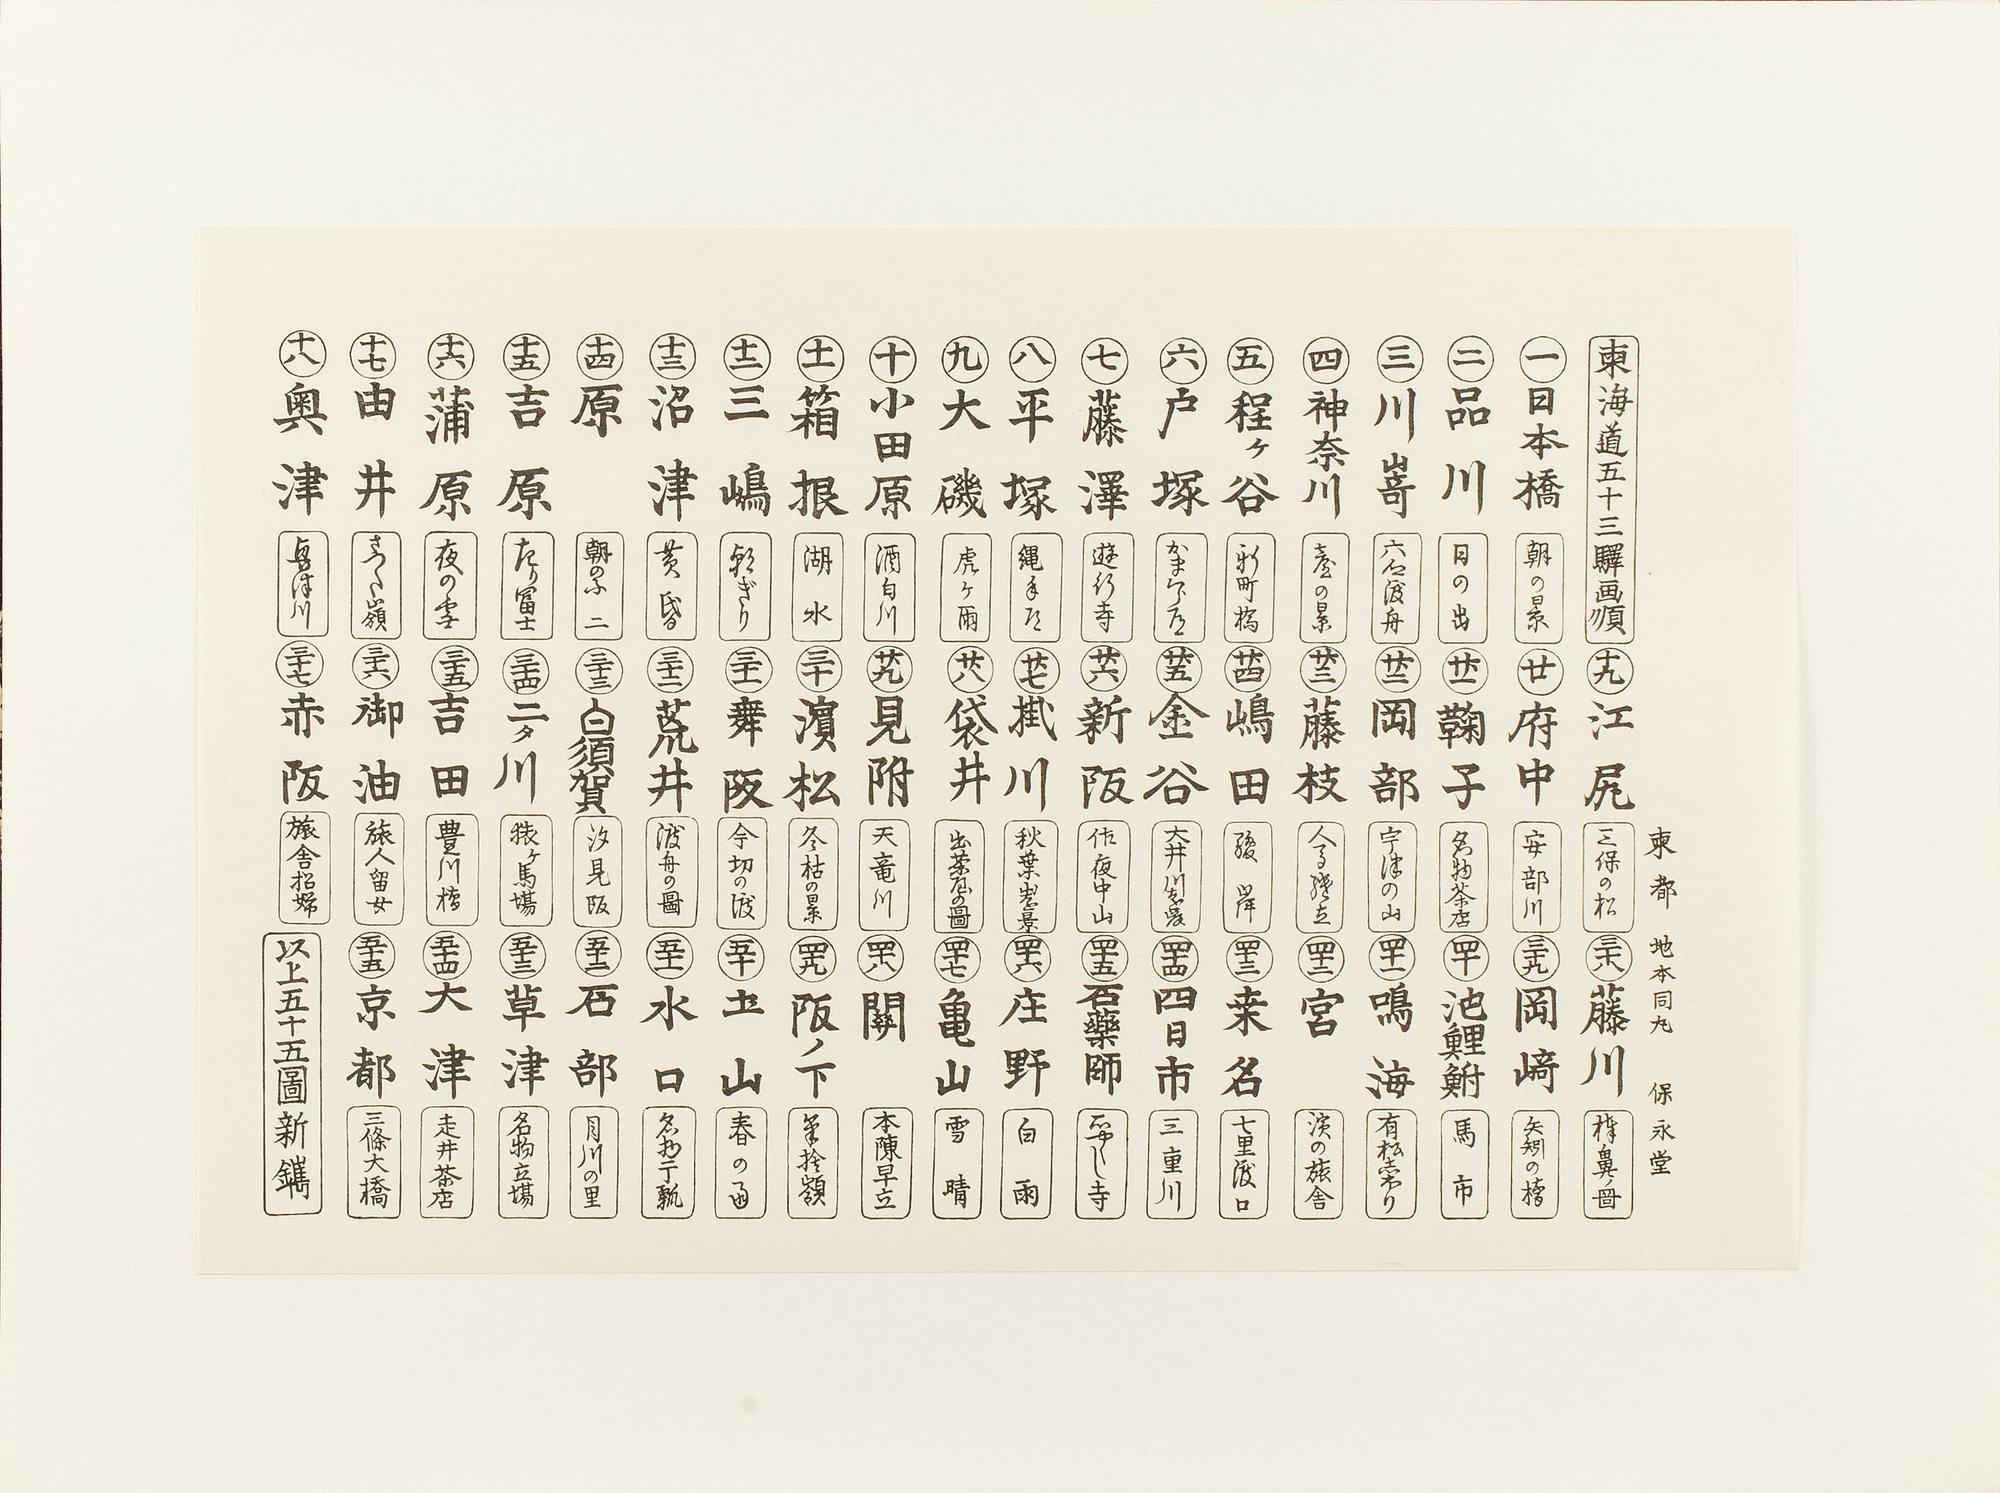 東海道五十三驛画順
一 日本橋 朝の景
二 品川 日の出
三 川嵜 六合渡舟
四 神奈川 臺の景
五 程ヶ谷 新町橋
六 戸塚
七 藤澤 遊行寺
八 平塚 縄手道
九 大磯 虎ヶ雨
十 小田原 酒匂川
十一 箱根 湖水
十二 三嶋 朝ぎり
十三 沼津 黄昏
十四 原 朝のふ二
十五 吉原 左り冨士
十六 蒲原 夜の雪
十七 由井 さつた嶺
十八 奥津 興津川
十九 江尻 三保の松
廿 府中 安部川
廿一 鞠子 名物茶店
廿二 岡部 宇津の山
廿三 藤枝 人馬継立
廿四 嶋田 駿岸
廿五 金谷 大井川遠岸
廿六 新阪 佐夜中山
廿七 掛川 秋葉山遠景
廿八 袋井 出茶屋の圖
廿九 見附 天竜川
三十 濵松 冬枯の景
三十一 舞阪 今切の渡
三十二 荒井 渡舟の圖
三十三 白須賀 汐見阪
三十四 二タ川 猿ヶ馬場
三十五 吉田 豊川橋
三十六 御油 旅人留女
三十七 赤阪 旅舎招婦
三十八 藤川 棒鼻ノ圖
三十九 岡﨑 矢矧の橋
四十 池鯉鮒 馬市
四十一 鳴海 有松志ぼり
四十二 宮 濱の旅舎
四十三 桒名 七里渡口
四十四 四日市 三重川
四十五 石薬師 石やくし寺
四十六 庄野 白雨
四十七 亀山 雪晴
四十八 関 本陳早立
四十九 阪ノ下 筆捨嶺
五十 土山 春の雨
五十一 水口 名物干瓢
五十二 石部 目川の里
五十三 草津 名物立場
五十四 大津 走井茶店
五十五 京都 三條大橋
以上五十五圖新鐫
東都 地本同丸 保永堂